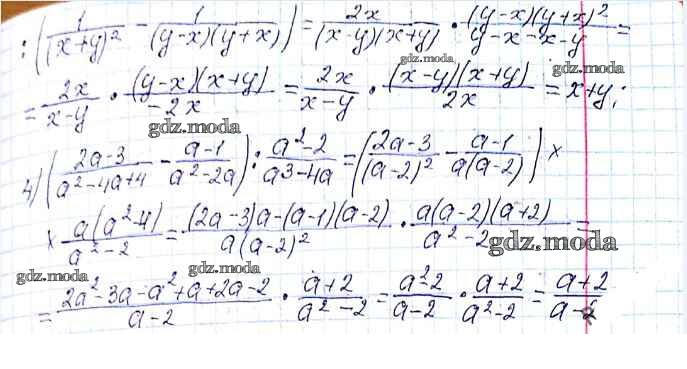 : (1/(x+y)² - 1/((y-x)(y+x))) = 2x/((x-y)(x+y)) · (y-x)(y+x)²/(y-x-x-y) =
gdz.moda
= 2x/(x-y) · (y-x)(x+y)/(-2x) = 2x/(x-y) · (x-y)(x+y)/2x = x+y;
gdz.moda
gdz.moda
4) ((2a-3)/(a²-4a+4) - (a-1)/(a²-2a)) : (a²-2)/(a³-4a) = ((2a-3)/(a-2)² - (a-1)/(a(a-2))) ×
gdz.moda
× a(a²-4)/(a²-2) = ((2a-3)a-(a-1)(a-2))/(a(a-2)²) · a(a-2)(a+2)/(a²-2) =
gdz.moda
gdz.moda
gdz.moda
= (2a²-3a-a²+a+2a-2)/(a-2) · (a+2)/(a²-2) = (a²-2)/(a-2) · (a+2)/(a²-2) = (a+2)/(a-2)
gdz.moda